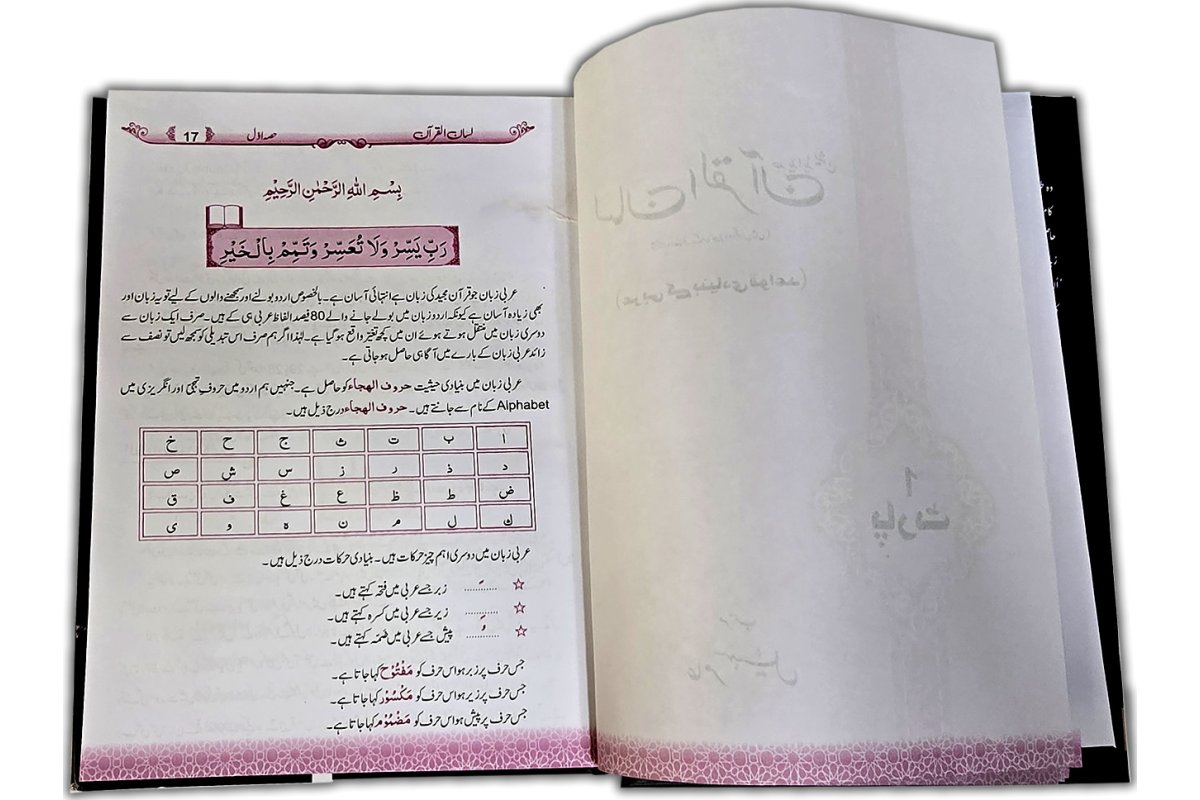 لسان القرآن حصہ اول 17
بِسْمِ اللهِ الرَّحْمٰنِ الرَّحِيْمِ
رَبِّ يَسِّرْ وَلَا تُعَسِّرْ وَتَمِّمْ بِالْخَيْرِ
عربی زبان جو قرآن مجید کی زبان ہے انتہائی آسان ہے۔ بالخصوص اردو بولنے اور سمجھنے والوں کے لیے تو یہ زبان اور
بھی زیادہ آسان ہے کیونکہ اردو زبان میں بولے جانے والے 80 فیصد الفاظ عربی ہی کے ہیں۔ صرف ایک زبان سے
دوسری زبان میں منتقل ہوتے ہوئے ان میں کچھ تغیّر واقع ہو گیا ہے۔ لہٰذا اگر ہم صرف اس تبدیلی کو سمجھ لیں تو نصف سے
زائد عربی زبان کے بارے میں آگاہی حاصل ہو جاتی ہے۔
عربی زبان میں بنیادی حیثیت حروف الهجاء کو حاصل ہے۔ جنہیں ہم اردو میں حروف تہجی اور انگریزی میں
Alphabet کے نام سے جانتے ہیں۔ حروف الهجاء درج ذیل ہیں۔
ا ب ت ث ج ح خ
د ذ ر ز س ش ص
ض ط ظ ع غ ف ق
ك ل م ن ه و ی
عربی زبان میں دوسری اہم چیز حرکات ہیں۔ بنیادی حرکات درج ذیل ہیں۔
☆ .....َ...... زبر جسے عربی میں فتحہ کہتے ہیں۔
☆ .....ِ...... زیر جسے عربی میں کسرہ کہتے ہیں۔
☆ .....ُ...... پیش جسے عربی میں ضمہ کہتے ہیں۔
جس حرف پر زبر ہو اس حرف کو مَفْتُوْح کہا جاتا ہے۔
جس حرف پر زیر ہو اس حرف کو مَكْسُوْر کہا جاتا ہے۔
جس حرف پر پیش ہو اس حرف کو مَضْمُوْم کہا جاتا ہے۔
لسان القرآن
(عربی کے بنیادی قواعد)
1
پارٹ